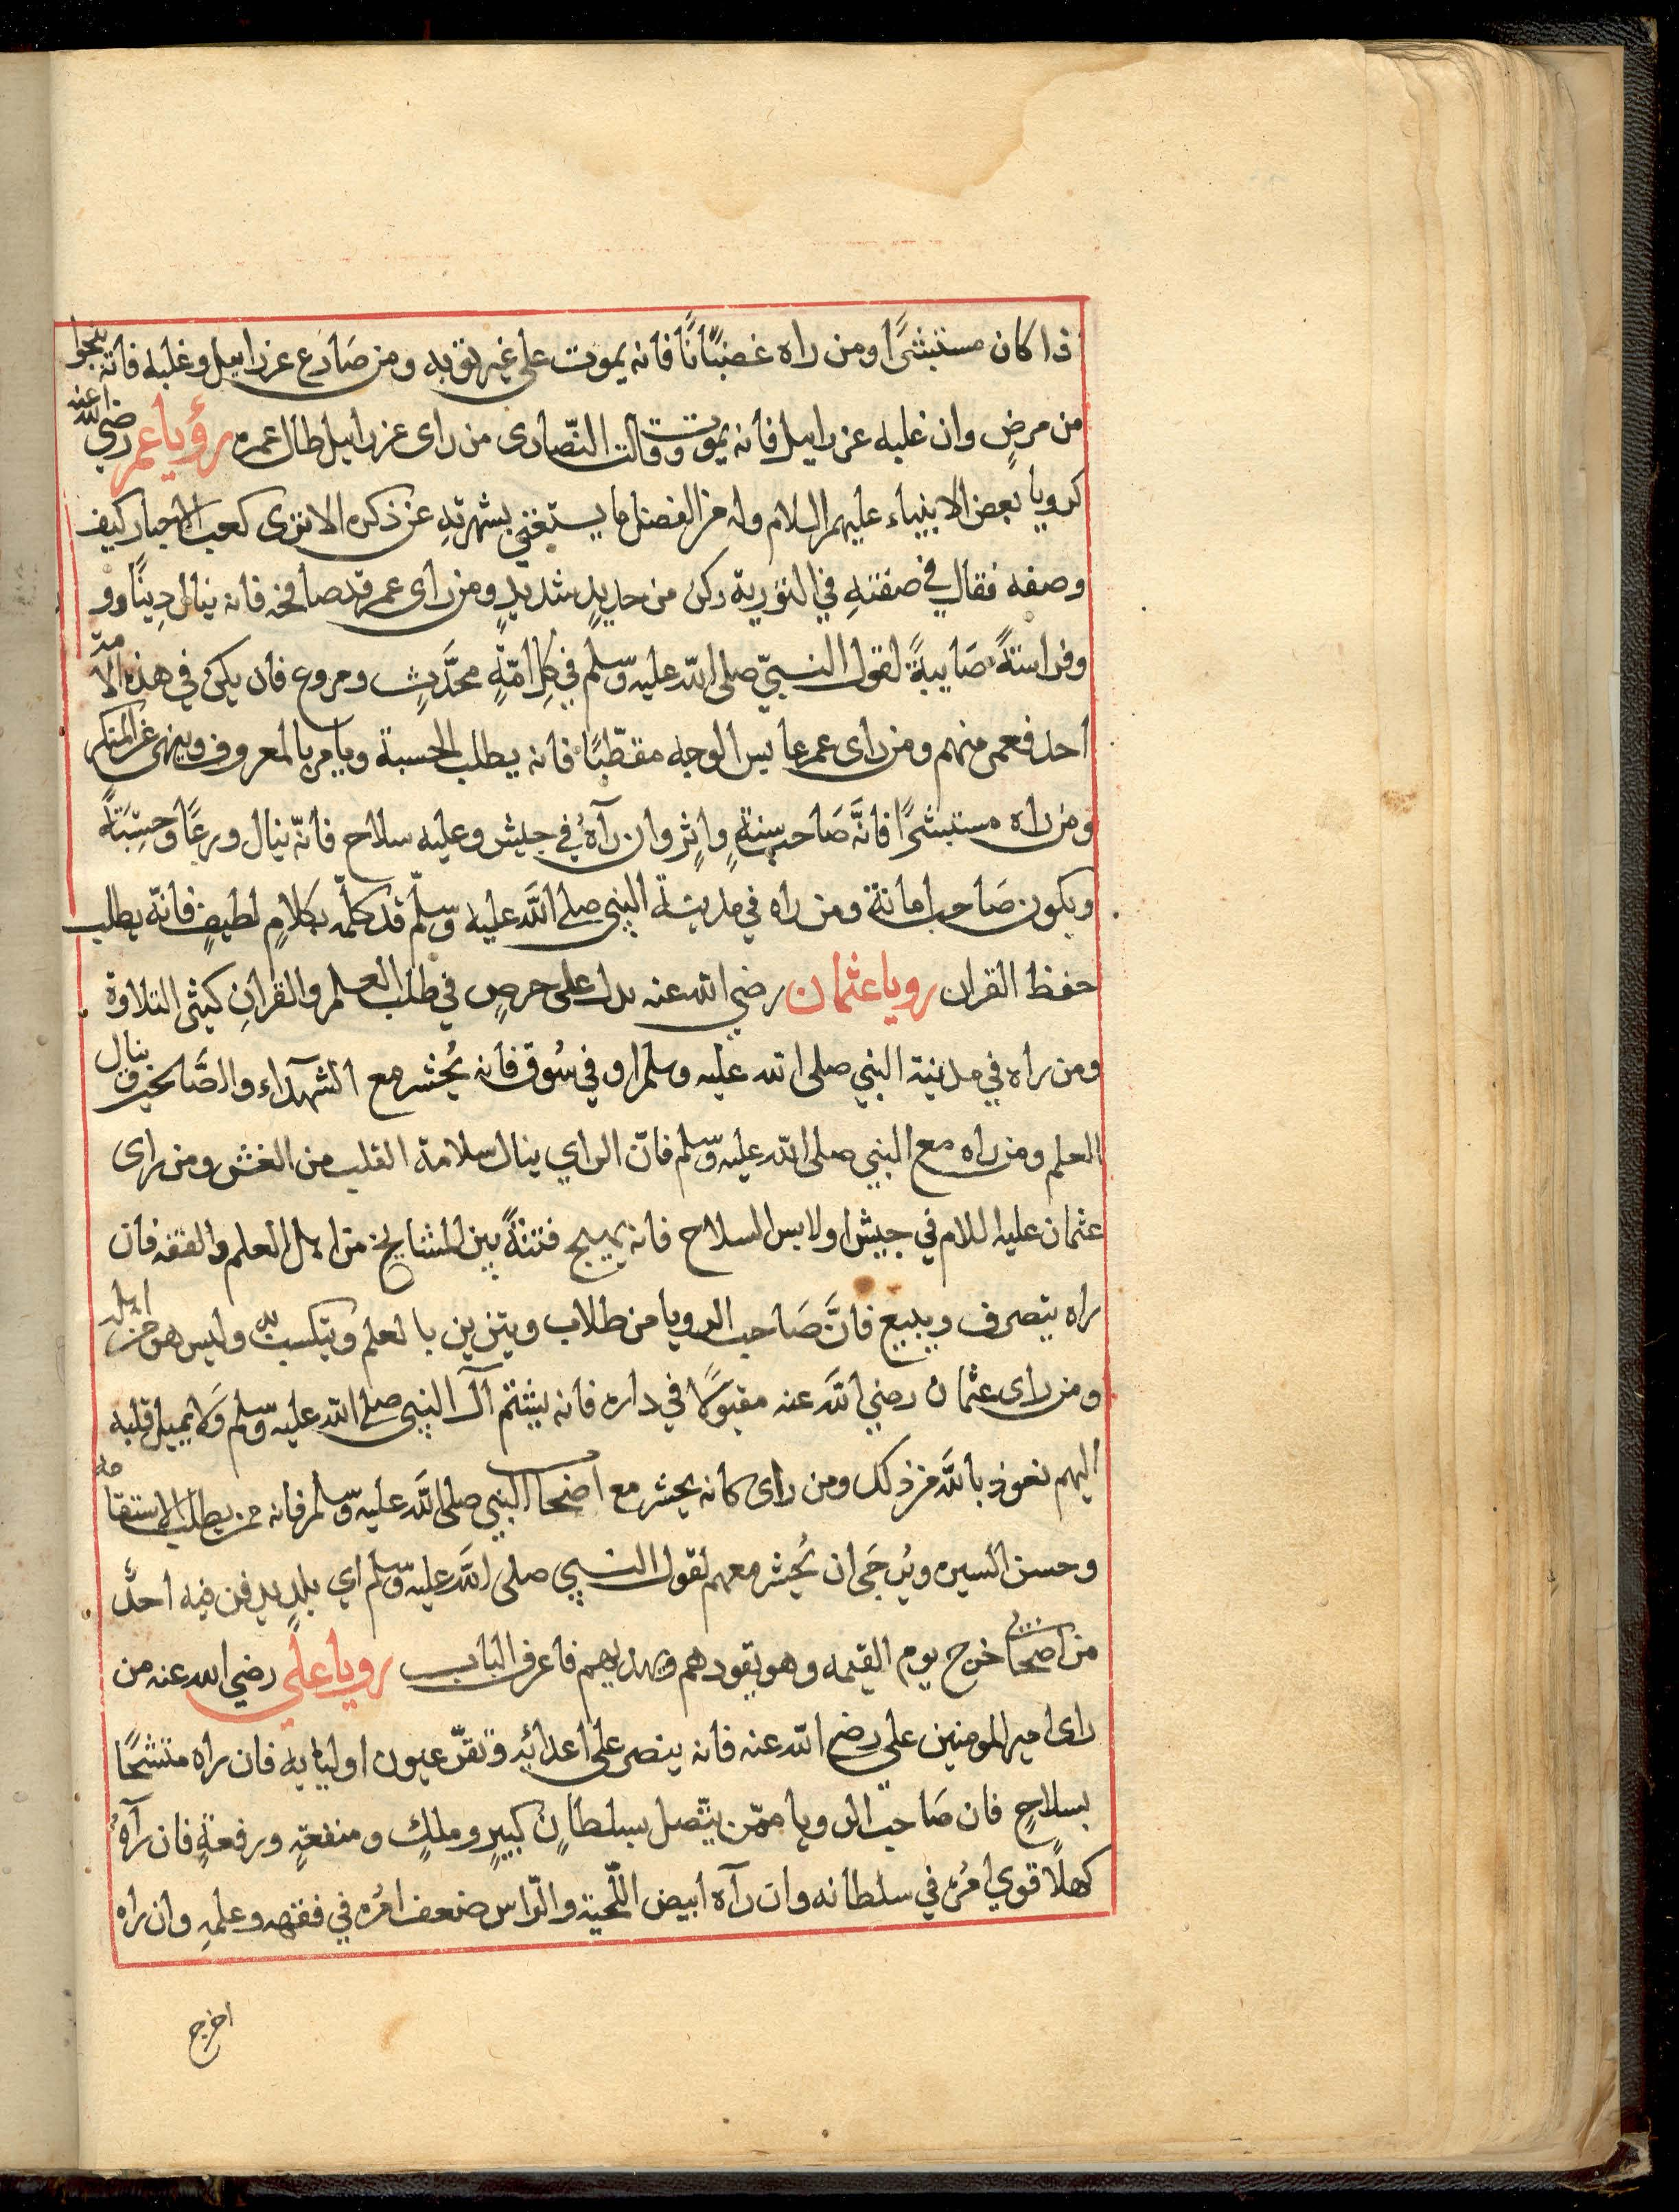 ذا كان مستبشرًا ومن راه غضبًانًا فانه يموت على غير توبه ومن صَارَع عزراييل وغلبه فانه ينجوا
من مرضٍ وان غلبه عزراييل فانه يموت وقالت النّصارى من راى عزراييل طال عمره رؤيا عمر رضي الله عنه
كرويا بعض الانبياء عليهم السلام وله من الفضل ما يستغني بشهرتهِ عن ذكره الا ترى كعب الاحبار كيف
وصفه فقال في صفتهِ في التورية ركن من حديدٍ شديدٍ ومن راى عمر قد صافحه فانه ينال دِينًا وو
وفراسَتةً صَايبةً لقول النبيّ صلى الله عليه وسلّم في كل امّةٍ محدَّثٍ ومروع فان يكن في هذه الامة
احد فعمر منهم ومن راى عمر عابس الوجه مقطّبًا فانه يطلب الحسبة ويامر بالمعروف وينهى عن المنكر
ومن راه مستبشرًا فانَّه صَاحب سنةٍ واثرٍ وان رآهُ في جيش وعليه سلاح فانّه ينال ورعًا وحسَبَتةً
ويكون صَاحب امانة ومن راه في مدينة النبي صلى اللّه عليه وسلّم قد كلّمه بكلامٍ لطيفٍ فانّه يطلب
حفظ القران رويا عثمان رضي الله عنه يدل على حرصٍ في طلب العلم والقرانِ كيثر التلاوة
ومن راه في مدينة النبي صلى الله عليه وسلم او في سُوق فانه يُحشر مع الشهدآء والصَّالحين وينال
العلم ومن راه مع النبي صلى الله عليه وسلّم فانّ الراي ينال سلامة القلب من الغش ومن راى
عثمان عليه اللام في جيش او لابس السلاح فانه يهيج فتنةً بين المشايخ من اهل العلم والفقه فان
راه يتصرف ويبيع فانَّ صَاحب الرويا من طلاب ويتزين بالعلم ويتكسب به وليس هو من اهله
ومن راى عثمان رضي اللّه عنه مقبوًلا في داره فانه يشتم آل النبي صلى الله عليه وسلم ولا يميل قلبه
اليهم نعوذ باللّه من ذلك ومن راى كانه يحشر مع اصحاب النبي صلى اللّه عليه وسلّم فانه من يطلب الاستقامه
وحسن السيره ويُرجَى ان يُحشر معهم لقول النبي صلى اللّه عليه وسلّم اي بلدٍ يدفن فيه احدٌ
من اصحابي خرج يوم القيمه وهو يقودهم ويهديهم فاعرف الباب رويا علي رضي الله عنه من
راى امير المومنين على رضي الله عنه فانه ينصر على اعدائه وتقرّ عيون اوليايه فان راه متشحًا
بسلاحٍ فان صَاحب الرويا ممّن يتّصل بسلطانٍ كبيرٍ وملكٍ ومنفعةٍ ورفعةٍ فان رآهُ
كهلًا قوي امُره في سلطانه وان رآه ابيض اللّحية والرّاس ضعف امُره في فقهه وعلمهِ وان راه
اخرج